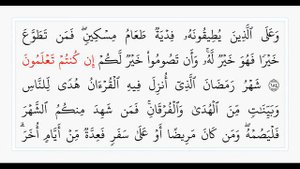 وَعَلَى ٱلَّذِينَ يُطِيقُونَهُۥ فِدْيَةٌ طَعَامُ مِسْكِينٍ ۖ فَمَن تَطَوَّعَ
خَيْرًا فَهُوَ خَيْرٌ لَّهُۥ ۚ وَأَن تَصُومُوا۟ خَيْرٌ لَّكُمْ ۖ إِن كُنتُمْ تَعْلَمُونَ
١٨٤ شَهْرُ رَمَضَانَ ٱلَّذِىٓ أُنزِلَ فِيهِ ٱلْقُرْءَانُ هُدًى لِّلنَّاسِ
وَبَيِّنَـٰتٍ مِّنَ ٱلْهُدَىٰ وَٱلْفُرْقَانِ ۚ فَمَن شَهِدَ مِنكُمُ ٱلشَّهْرَ
فَلْيَصُمْهُ ۖ وَمَن كَانَ مَرِيضًا أَوْ عَلَىٰ سَفَرٍ فَعِدَّةٌ مِّنْ أَيَّامٍ أُخَرَ ۗ